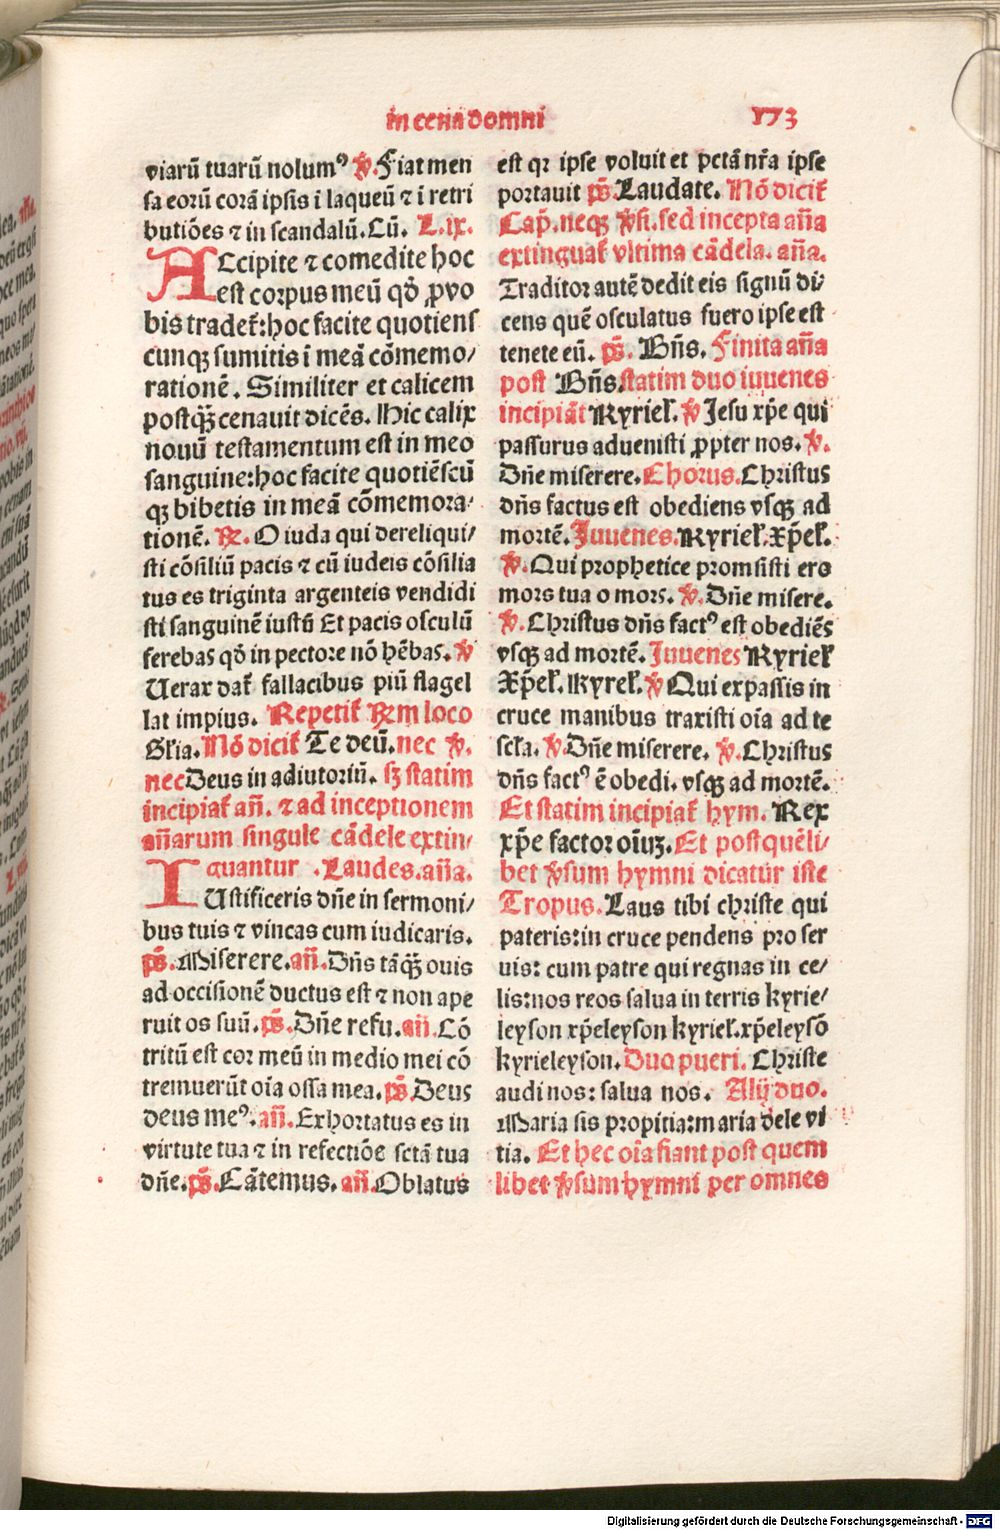 in cena domni
173
viarũ tuarũ nolumꝰ ℣. Fiat men
sa eorũ corã ipsis i laqueũ ⁊ i retri
butiões ⁊ in scandalũ. Cũ. L. ix.
ACcipite ⁊ comedite hoc
est corpus meũ qð ꝓ vo
bis tradet᷑: hoc facite quotiens
cunqꝫ sumitis i meã cõmemo/
rationẽ. Similiter et calicem
postqꝫ̃ cenauit dicẽs. Hic calix
nouũ testamentum est in meo
sanguine: hoc facite quotiẽscũ
qꝫ bibetis in meã cõmemora/
tionẽ. ℟. O iuda qui dereliqui/
sti cõsiliũ pacis ⁊ cũ iudeis cõsilia
tus es triginta argenteis vendidi
sti sanguinẽ iustũ Et pacis osculũ
ferebas qð in pectore nõ hẽbas. ℣
Uerax dat᷑ fallacibus piũ flagel
lat impius. Repetit᷑ ℟em loco
Gl'ia. Nõ dicit᷑ Te deũ. nec ℣.
nec Deus in adiutoriũ. sꝫ statim
incipiat᷑ añ. ⁊ ad inceptionem
añarum singule cãdele extin/
guantur. Laudes. aña.
IUstificeris dñe in sermoni/
bus tuis ⁊ vincas cum iudicaris.
p̃s. Miserere. añ. Dñs tãqꝫ̃ ouis
ad occisionẽ ductus est ⁊ non ape
ruit os suũ. p̃s. Dñe refu. añ. Cõ
tritũ est cor meũ in medio mei cõ
tremuerũt oĩa ossa mea. p̃s. Deus
deus meꝰ. añ. Exhortatus es in
virtute tua ⁊ in refectiõe sctã tua
dñe. p̃s. Cãtemus. añ. Oblatus
est qꝛ ipse voluit et pctã nr̃a ipse
portauit p̃s. Laudate. Nõ dicit᷑
Cap̃. neqꝫ ℣si. sed incepta aña
extinguat᷑ vltima cãdela. aña.
Traditor autẽ dedit eis signũ di/
cens quẽ osculatus fuero ipse est
tenete eũ. p̃s. Bñs. Finita aña
post Bñs. statim duo iuuenes
incipiãt Kyriel'. ℣ Jesu xp̃e qui
passurus aduenisti ꝓpter nos. ℣.
Dñe miserere. Chorus. Christus
dñs factus est obediens vsqꝫ ad
mortẽ. Juuenes. Kyriel'. Xp̃el'.
℣. Qui prophetice promisisti ero
mors tua o mors. ℣. Dñe misere.
℣. Christus dñs factꝰ est obediẽs
vsqꝫ ad mortẽ. Juuenes Kyriel'
Xp̃el'. Kyrel'. ℣ Qui expassis in
cruce manibus traxisti oĩa ad te
scl'a. ℣. Dñe miserere. ℣. Christus
dñs factꝰ ẽ obedi. vsqꝫ ad mortẽ.
Et statim incipiat᷑ hym. Rex
xp̃e factor oĩuꝫ. Et post quẽli/
bet ℣sum hymni dicatur iste
Tropus. Laus tibi christe qui
pateris: in cruce pendens pro ser
uis: cum patre qui regnas in ce/
lis: nos reos salua in terris kyrie/
leyson xp̃eleyson kyriel'. xp̃eleysõ
kyrieleyson. Duo pueri. Christe
audi nos: salua nos. Alij duo.
Maria sis propitia: maria dele vi
tia. Et hec oĩa fiant post quem
libet ℣sum hymni per omnes
Digitalisierung gefördert durch die Deutsche Forschungsgemeinschaft - DFG